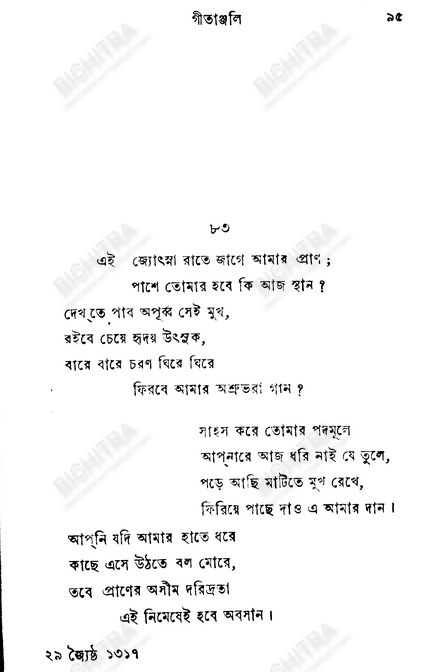 গীতাঞ্জলি ৯৫
৮৩
এই জ্যোৎস্না রাতে জাগে আমার প্রাণ ;
পাশে তোমার হবে কি আজ স্থান ?
দেখ্‌তে পাব অপূর্ব্ব সেই মুখ,
রইবে চেয়ে হৃদয় উৎসুক,
বারে বারে চরণ ঘিরে ঘিরে
ফিরবে আমার অশ্রুভরা গান ?
সাহস করে তোমার পদমূলে
আপ্‌নারে আজ ধরি নাই যে তুলে,
পড়ে আছি মাটিতে মুখ রেখে,
ফিরিয়ে পাছে দাও এ আমার দান ।
আপ্‌নি যদি আমার হাতে ধরে
কাছে এসে উঠতে বল মোরে,
তবে প্রাণের অসীম দরিদ্রতা
এই নিমেষেই হবে অবসান ।
২৯ জ্যৈষ্ঠ ১৩১৭
BICHITRA
BICHITRA
BICHITRA
BICHITRA
BICHITRA
BICHITRA
BICHITRA
BICHITRA